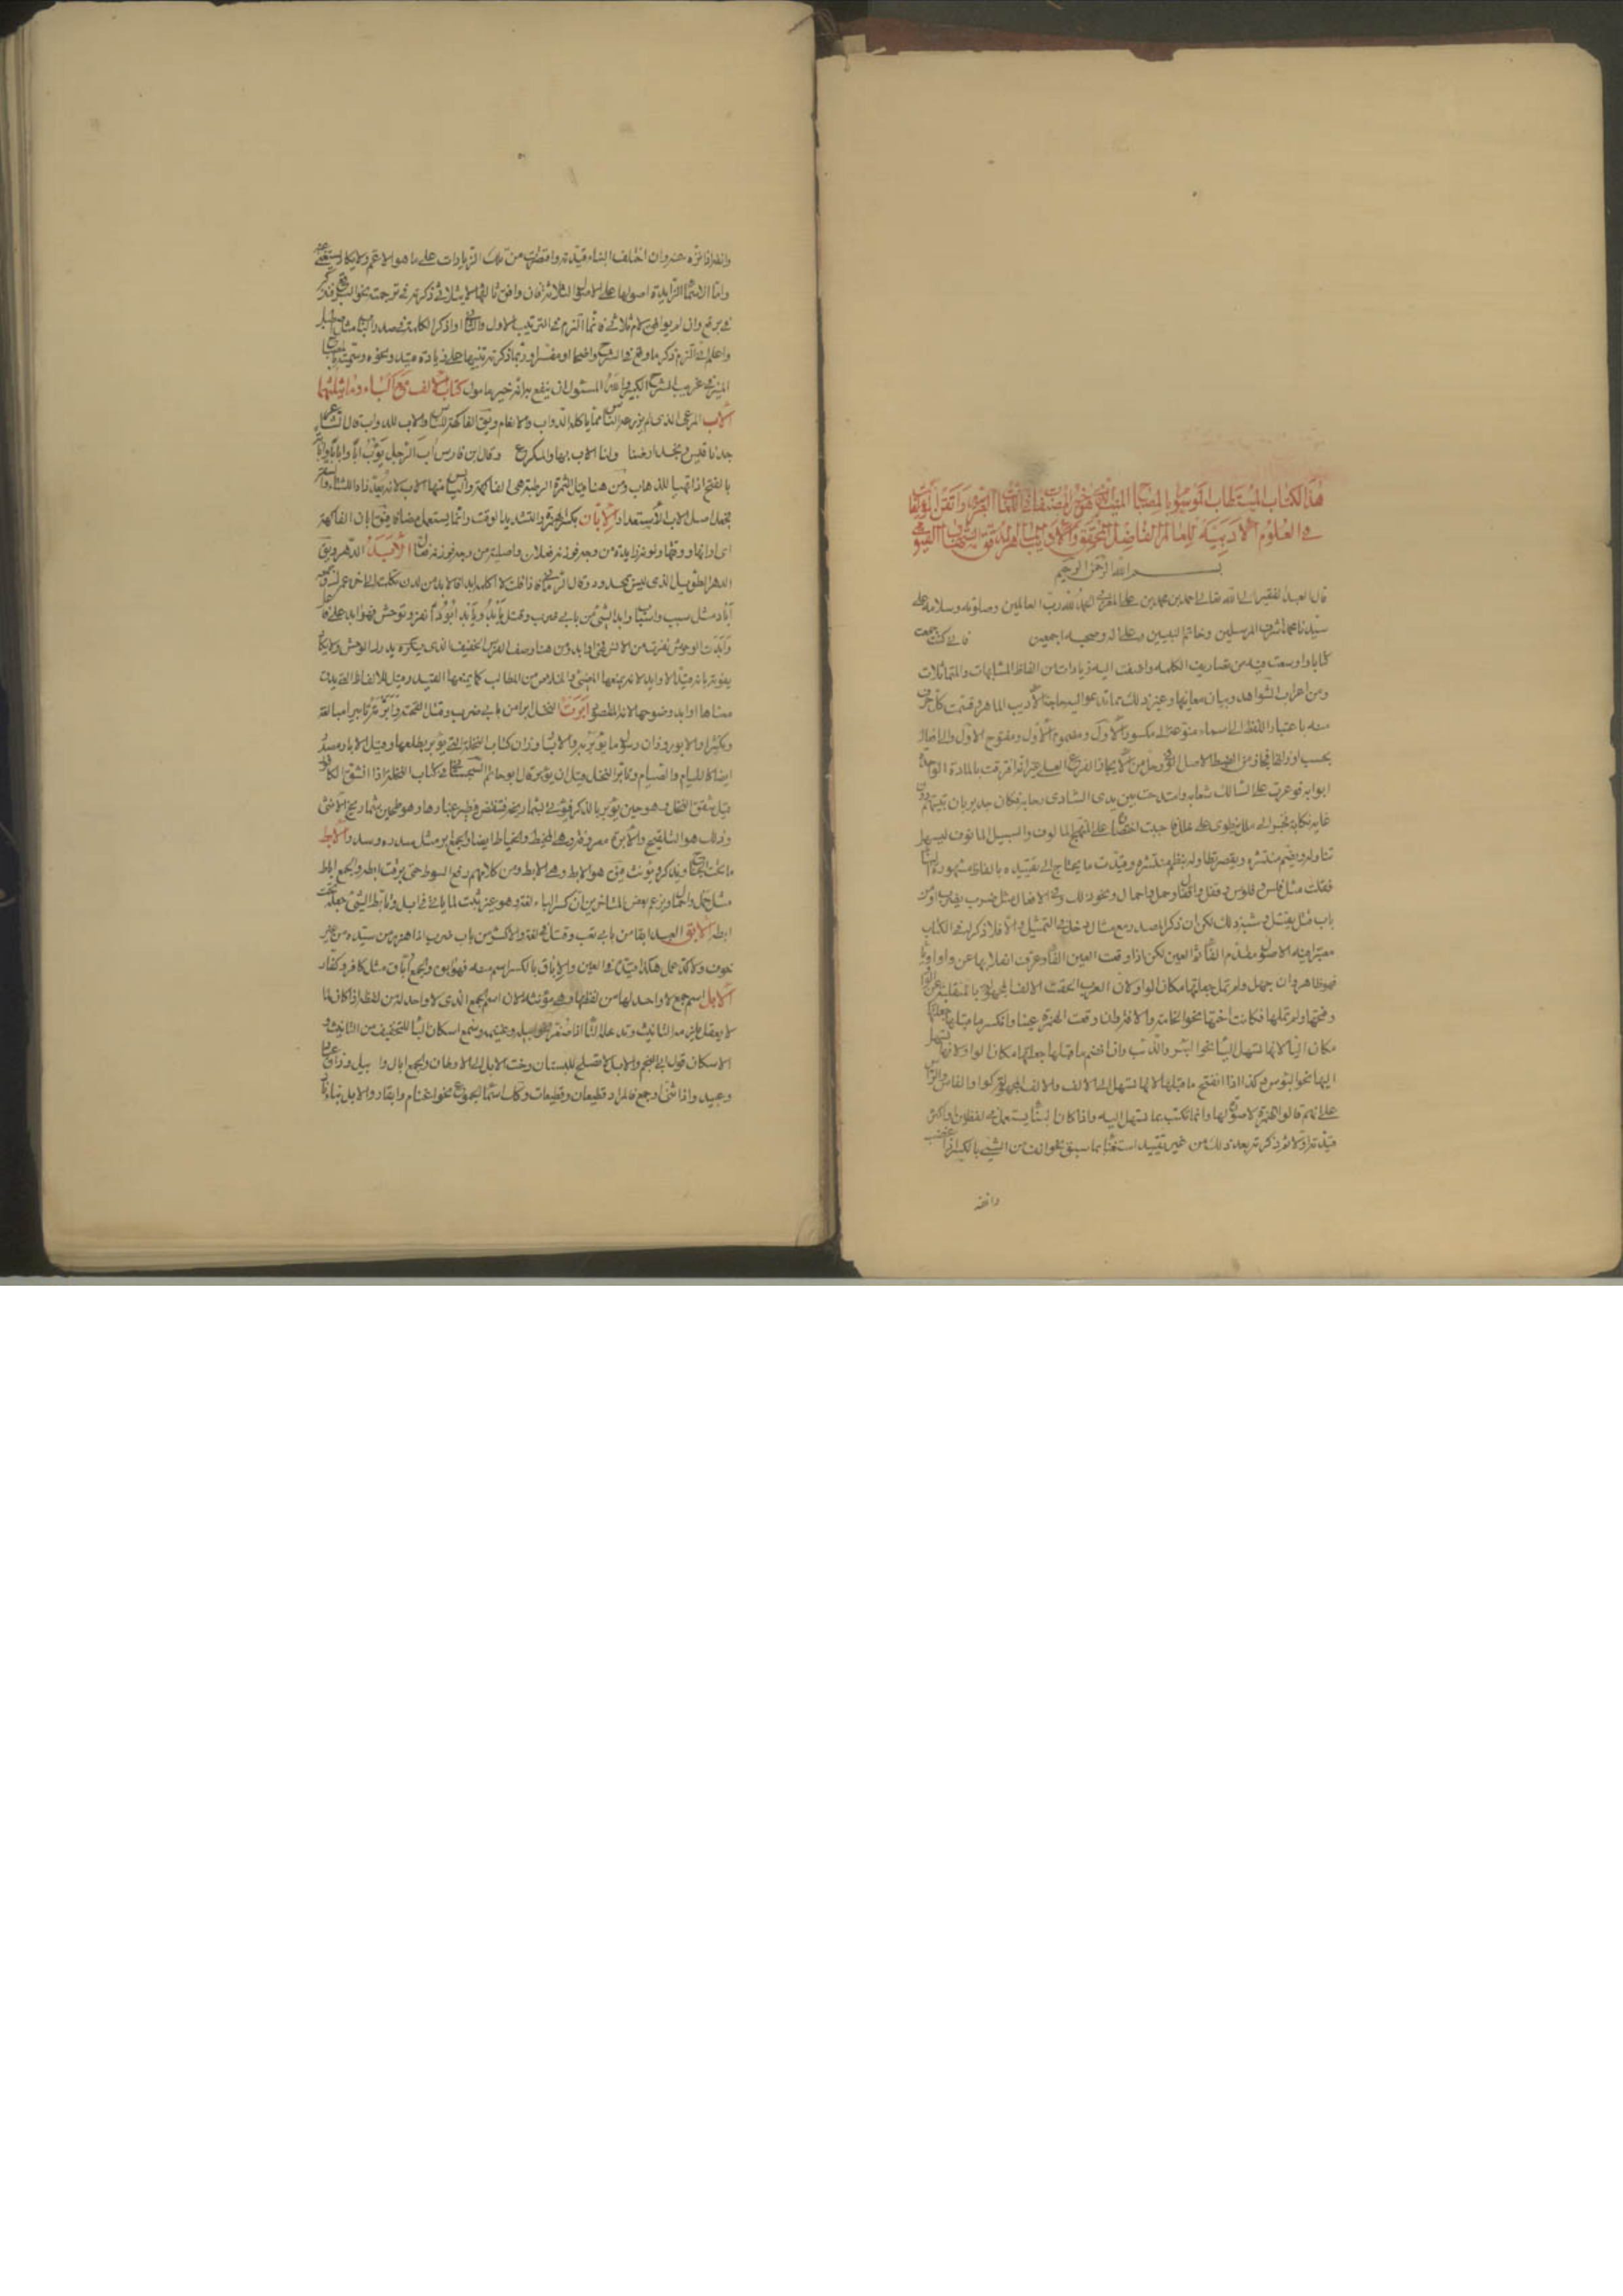 هذا الكتاب المستطاب الموسوم بالمصباح المنير
في العلوم الأدبية للعالم الفاضل المحقق
بسم الله الرحمن الرحيم
قال العبد الفقير الى الله تعالى احمد بن محمد بن على المقرى الحمد لله رب العالمين وصلوته وسلامه على
سيدنا محمد اشرف المرسلين وخاتم النبيين وعلى اله وصحبه اجمعين فانى كنت جمعت
كتابا واوسعت فيه من تصاريف الكلمه واضفت اليه زيادات من الفاظ المشتبهات والمتماثلات
ومن اعراب الشواهد وبيان معانيها وغير ذلك مما تدعو اليه حاجة الاديب الماهر وقسمت كل حرف
منه باعتبار اللفظ الى اسماء منوعة الى مكسور الاول ومضموم الاول ومفتوح الاول والى افعال
بحسب اوزانها فحاز من الضبط الاصل الوفى وحل من الايجاز الفرع العلى غير انه افترقت بالمادة الواحدة
ابوابه فوعرت على السالك شعابه وامتدحت بين يدى الشادى رحابه فكان جديرا بان تنبهر دون
غايته ركابه فجر الى ملل ينطوى على خلل فاحببت اختصاره على النهج المالوف والسبيل المانوف ليسهل
تناوله بضم منتشره ويقصر تطاوله بنظم منتثره وقيدت ما يحتاج الى تقييده بالفاظ مشهورة البناء
فقلت مثل فلس وفلوس وقفل واقفال وحمل واحمال ونحو ذلك وفى الافعال مثل ضرب يضرب او من
باب قتل يقتل وشبه ذلك لكن ان ذكر المصدر مع مثال دخل فى التمثيل والا فلا ذكرت الكتاب
معتبرا فيه الاصول مقدم الفاء ثم العين لكن اذا وقعت العين الفا وعرف انقلابها عن واو او ياء
فهو ظاهر وان جهل ولم تمل جعلتها مكان الواو لان العرب الحقت الالف المجهولة بالمنقلبة عن الواو
وفتحها ولم تملها فكانت اختها نحو الخامة والافة وان وقعت الهمزة عينا وانكسر ما قبلها جعلتها
مكان الياء لانها تسهل اليها نحو البئر والذئب وان انضم ما قبلها جعلتها مكان الواو لانها تسهل
اليها نحو البؤس وكذا اذا انفتح ما قبلها لانها تسهل الى الالف والالف المجهولة كواو كالفاس والراس
على انهم قالوا الهمزة لا صورة لها وانما تكتب بما تسهل اليه واذا كان البناء يستعمل فى لفظين واكثر
قيدته اولا ثم ذكرته بعد ذلك من غير تقييد استغناء بما سبق نحو انف من الشئ بالكسر اذا غضب
وانفه
وانفه اذا تنزه عنه وان اختلف البناء قيدته واقتصرت من تلك الزيادات على ما هو الاهم ولا يكاد يستغنى عنه
واما الاسماء الزايدة اصولها على الاصول الثلاثة فان وافق ثالثها لام ثلاثى ذكرته فى ترجمته نحو البرقع فيذكر
فى برق وان لم يوافق لام ثلاثى فانما التزم فى الترتيب الاول والثانى واذكر الكلمة فى صدر الباب مثل اصطبل
واعلم انى لم التزم ذكر ما وقع فى الشرح واضحا ومفسرا وربما ذكرته تنبيها على زيادة قيد ونحوه وسميته بالمصباح
المنير فى غريب الشرح الكبير والله المسئول ان ينفع به انه خير مامول كتاب الالف مع الباء وما يثلثهما
الاب المرعى الذى لم يزرعه الناس مما ياكله الدواب والانعام ويق الفاكهة للناس والاب للدواب قال الشاعر
جدنا قيس ونجد ارضنا ولنا الاب بها والمكرع وقال ابن فارس اب الرجل يؤب ابا وابابا وابابة
بالفتح اذا تهيا للذهاب ومن هنا قيل الثمرة الرطبة هى الفاكهة واليابس منها الاب لانه يعد زادا للشتاء والسفر
فجعل اصل الاب الاستعداد والابان بكسر الهمزة والتشديد الوقت وانما يستعمل مضافا فيق ابان الفاكهة
اى اوانها ووقتها ونونه زايدة من وجه فوزنه فعلان واصلية من وجه فوزنه فعال الابد الدهر ويق
الدهر الطويل الذى ليس بمحدود وقال الرمانى فاذا قلت لا اكلمه ابدا فالابد من لدن تكلمت الى اخر عمرك وجمعه
آباد مثل سبب واسباب وابد الشئ من بابى ضرب وقتل يأبد ويأبد ابودا نفر وتوحش فهو ابد على فاعل
وابدت الوحوش نفرت من الانس فهى اوابد ومن هنا وصف الفرس الخفيف الذى يدرك الوحش ولا يكاد
يفوته بانه قيد الاوابد لانه يمنعها المضى والخلاص من الطالب كما يمنعها القيد وقيل للالفاظ التى يدق
معناها اوابد لبعد وضوحها ابرت النخل ابرا من بابى ضرب وقتل لقحته وابرته تابيرا مبالغة
وتكثير والابور وزان رسول ما يؤبر به والابار وزان كتاب النخلة التى يؤبر بطلعها وقيل الابار مصدر
ايضا كالقيام والصيام وتابر النخل قبل ان يؤبر قال ابو حاتم السجستانى فى كتاب النخلة اذا انشق الكافور
قيل شقق النخل وهو حين يؤبر بالذكر فيؤتى بشماريخه فتنفض فيطير غبارها وهو طحين شماريخ الانثى
وذلك هو التلقيح والابرة معروفة وهى المخيط والخياط ايضا والجمع ابر مثل سدره وسدر والابط
ما تحت الجناح ويذكر ويؤنث فيق هو الابط وهى الابط ومن كلامهم رفع السوط حتى برقت ابطه والجمع اباط
مثل حمل واحمال ويزعم بعض المتاخرين ان كسر الباء لغة وهو غير ثابت لما ياتى فى ابل وتابط الشئ جعله تحت
ابطه الابق العبد ابقا من بابى تعب وقتل فى لغة والاكثر من باب ضرب اذا هرب من سيده من غير
خوف ولا كد عمل هكذا قيده فى العين والاباق بالكسر اسم منه فهو ابق والجمع اباق مثل كافر وكفار
الابل اسم جمع لا واحد لها من لفظها وهى مؤنثة لان اسم الجمع الذى لا واحد له من لفظه اذا كان لما
لا يعقل يلزمه التانيث وتدخله الهاء اذا صغر نحو ابيلة وغنيمة وسمع اسكان الباء للتخفيف من التانيث و
الاسكان قول ابى النجم والابل لا تصلح للبستان وحنت الابل الى الاوطان والجمع ابال وابيل وزان
وعبيد واذا ثنى او جمع فالمراد قطيعان وقطيعات وكذلك اسماء الجموع نحو اغنام وابقار والابل بناء نادر